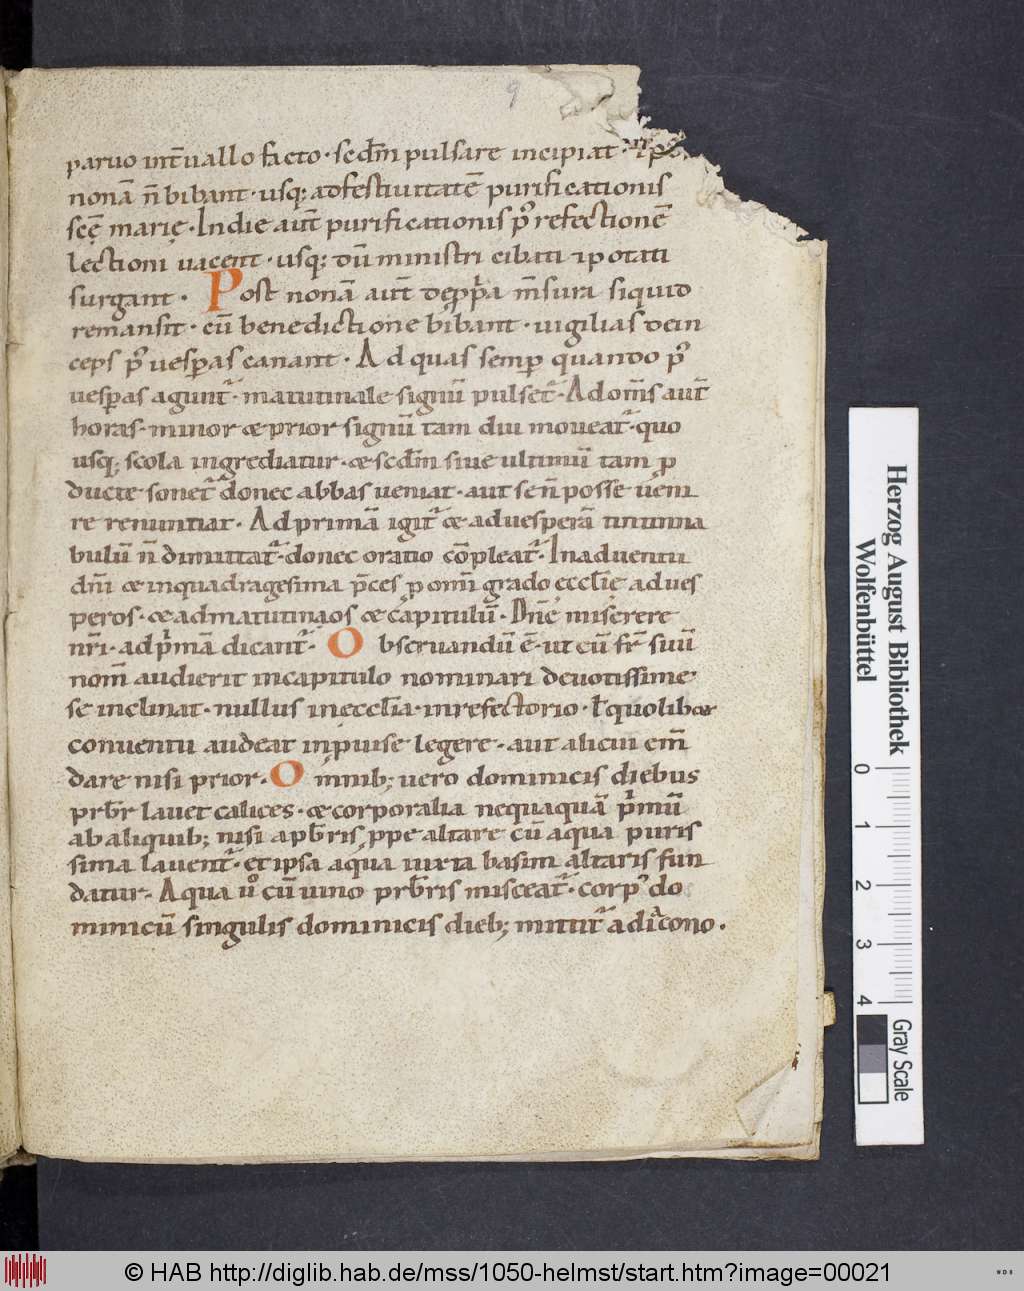 9
paruo int̄uallo facto · scd̄m pulsare incipiat ·
nonā n̄ bibant · usq; ad festiuitatē purificationis
scę̄ marię · In die aut̄ purificationis p᷒ refectionē
lectioni uacent · usq; dū ministri cibati ⁊ potati
surgant · Post nonā aut̄ de ppͥa m̄sura siquid
remansit · cū benedictione bibant · uigilias dein
ceps p᷒ uesꝑas canant · Ad quas semꝑ quando p᷒
uesꝑas agunt᷑ · matutinale signū pulset᷑ · Ad om̄s aut̄
horas · minor & prior signū tam diu moueat᷑ · quo
usq; scola ingrediatur · & scd̄m siue ultimū tam ꝑ
ducte sonet᷑ donec abbas ueniat · aut se n̄ posse ueni
re renuntiat · Ad primā igit᷑ & ad uesperā tintinna
bulū n̄ dimittat᷑ · donec oratio cōpleat᷑ · In aduentu
dn̄i & in quadragesima p̄ces ꝑ om̄i grado ęccl̄ię ad ues
peros · & ad matutinaos & capitulū · Dn̄e miserere
nr̄i · ad pͥmā dicant᷑ · Obseruandū ē · ut cū fr̄ suū
nom̄ audierit in capitulo nominari deuotissime
se inclinat · nullus in eccl̄ia · in refectorio · ł quolib&
conuentu audeat inpuise legere · aut alicui em̄
dare nisi prior · Omnib; uero dominicis diebus
prb̄r lauet calices · & corporalia nequaquā pͥmū
ab aliquib; nisi a pb̄ris ppe altare cū aqua puris
sima lauent᷑ · et ipsa aqua iuxta basim altaris fun
datur · Aqua uͦ cū uino prb̄ris misceat᷑ · corp᷒ do
minicū singulis dominicis dieb; mittit᷑ a diacono ·
Herzog August Bibliothek
Wolfenbüttel
0 1 2 3 4
Gray Scale
© HAB http://diglib.hab.de/mss/1050-helmst/start.htm?image=00021